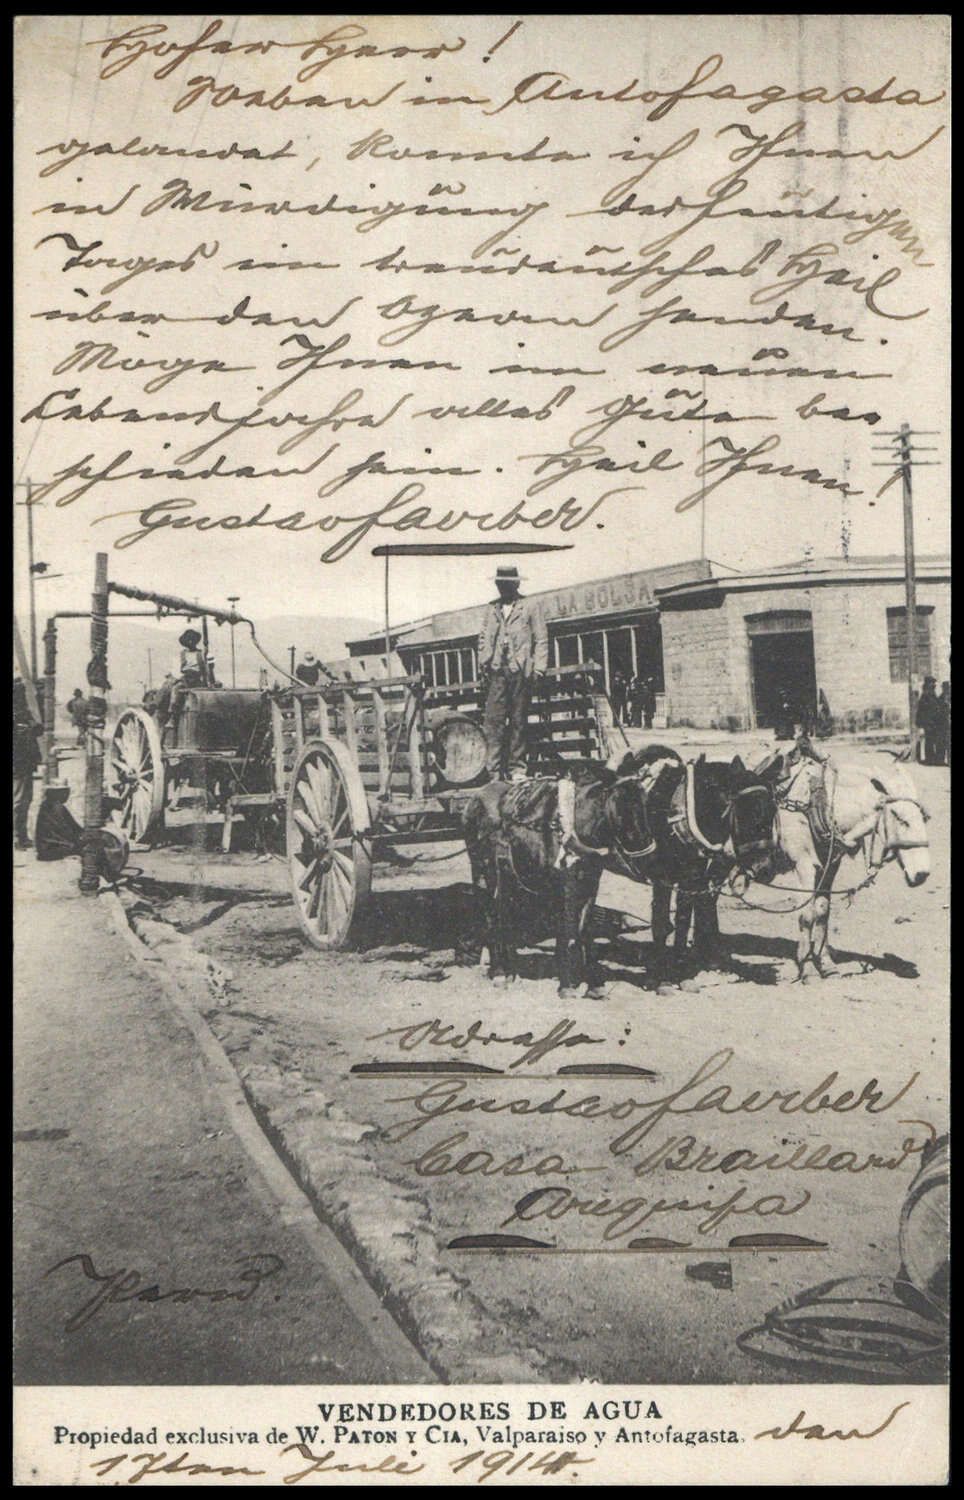 Hoher Herr!
Soeben in Antofagasta
gelandet, konnte ich Ihnen
in Würdigung des heutigen
Tages ein treudeutsches Heil
über den Ozean senden.
Möge Ihnen im neuen
Lebensjahre alles Gute be-
schieden sein. Heil Ihnen!
Gustav Faerber.
LA BOLSA
Adresse:
Gustav Faerber
Casa Braillard
Arequipa
Perú.
VENDEDORES DE AGUA
Propiedad exclusiva de W. PATON Y CIA, Valparaiso y Antofagasta. den
17ten Juli 1914.